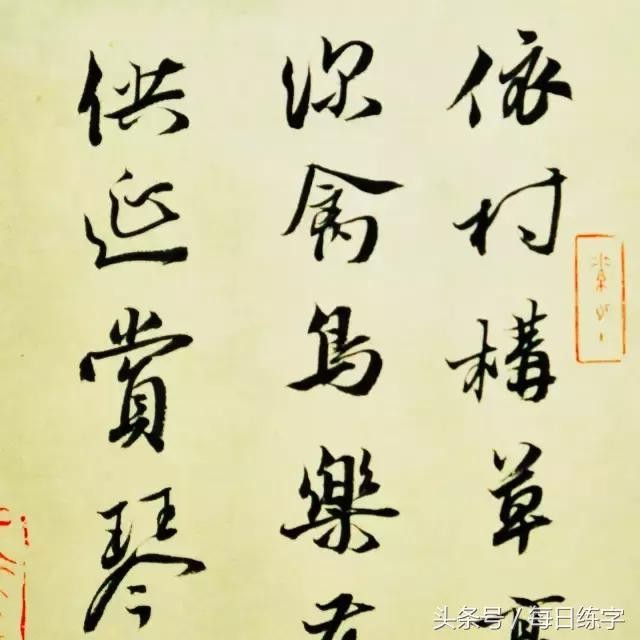 依村構草
深禽鳥樂
供延賞琴
头条号 / 每日练字